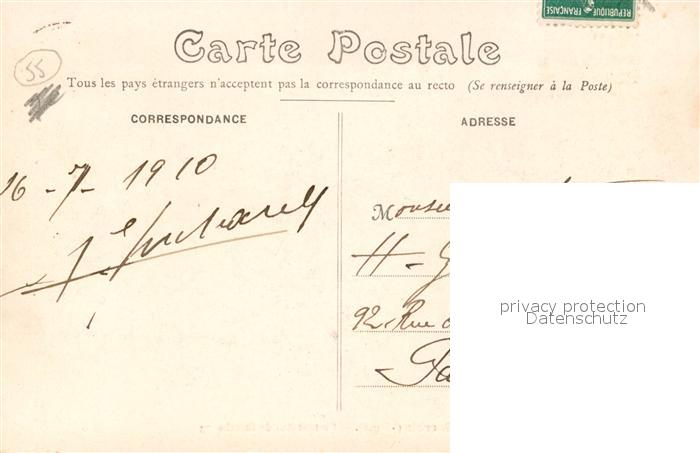 RÉPUBLIQUE FRANÇAISE
Carte Postale
55
Tous les pays étrangers n'acceptent pas la correspondance au recto (Se renseigner à la Poste)
CORRESPONDANCE
ADRESSE
26 - 7 - 1910
Monsie
H - G
92 Rue d
Pa
privacy protection
Datenschutz